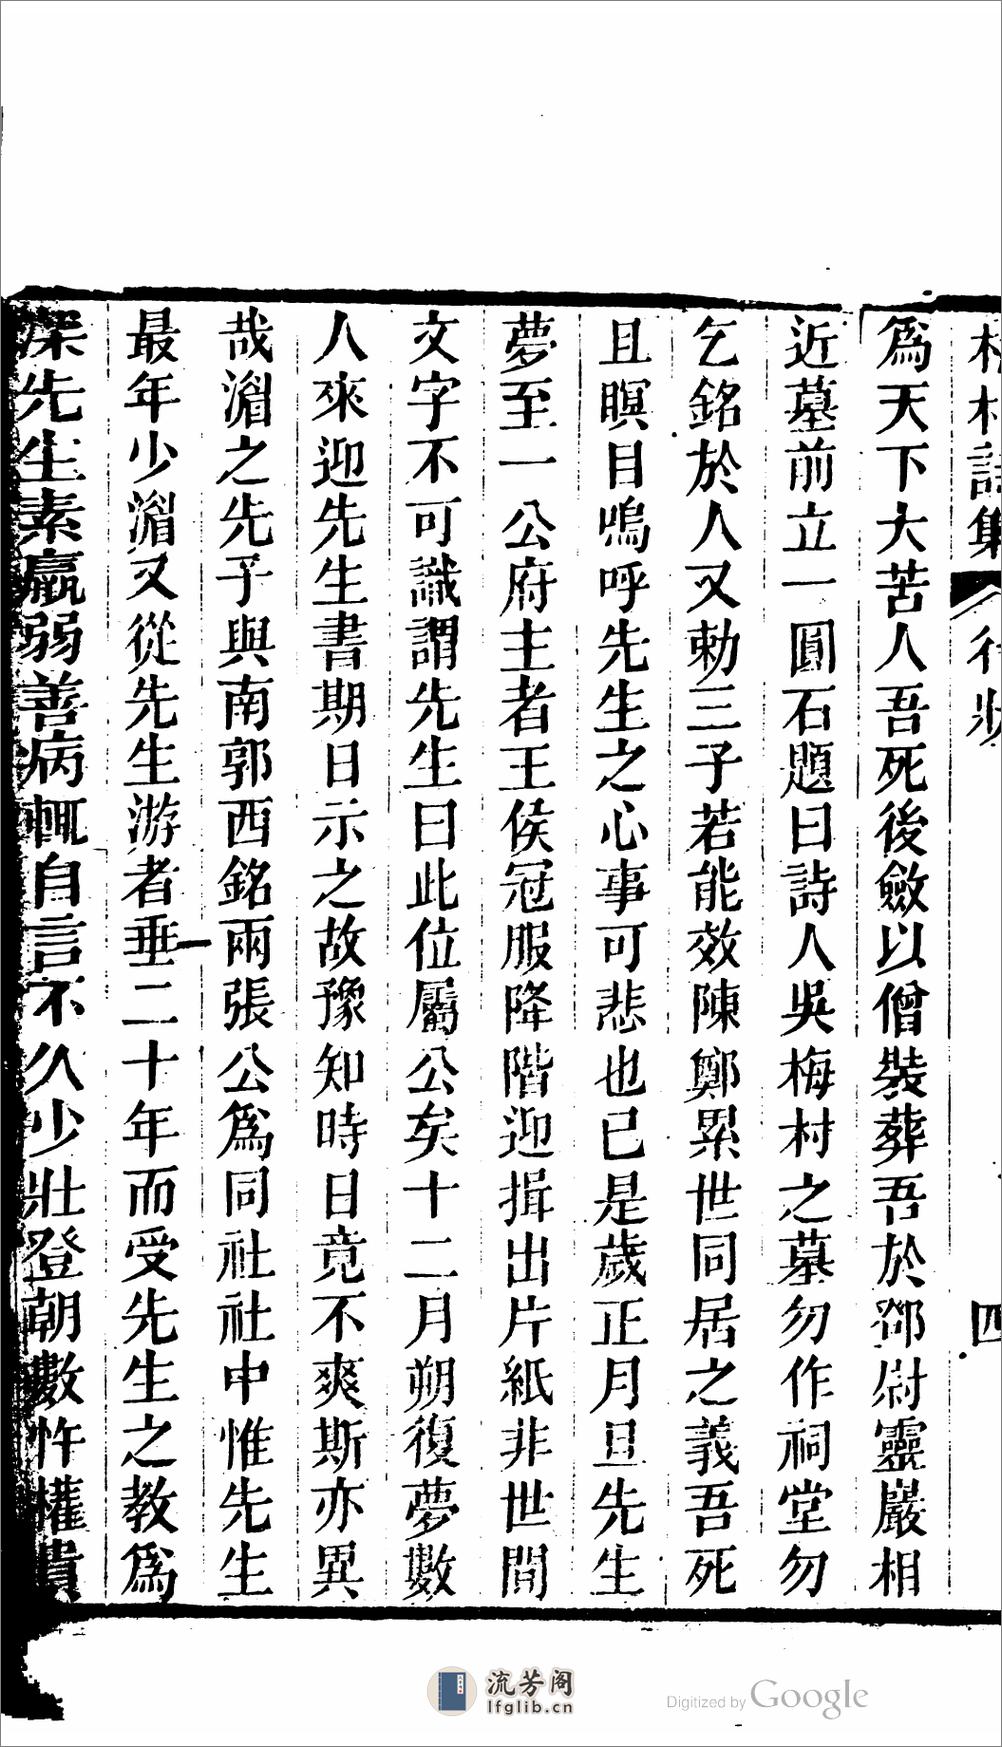 爲天下大苦人吾死後斂以僧裝葬吾於鄧尉靈巖相
近墓前立一圓石題曰詩人吳梅村之墓勿作祠堂勿
乞銘於人又勅三子若能效陳鄭累世同居之義吾死
且瞑目嗚呼先生之心事可悲也已是歲正月旦先生
夢至一公府主者王侯冠服降階迎揖出片紙非世間
文字不可識謂先生曰此位屬公矣十二月朔復夢數
人來迎先生書期日示之故豫知時日竟不爽斯亦異
哉湄之先子與南郭西銘兩張公爲同社社中惟先生
最年少湄又從先生游者垂二十年而受先生之教爲
深先生素羸弱善病輒自言不久少壯登朝數忤權貴
行狀
四
流芳阁
lfglib.cn
Digitized by Google